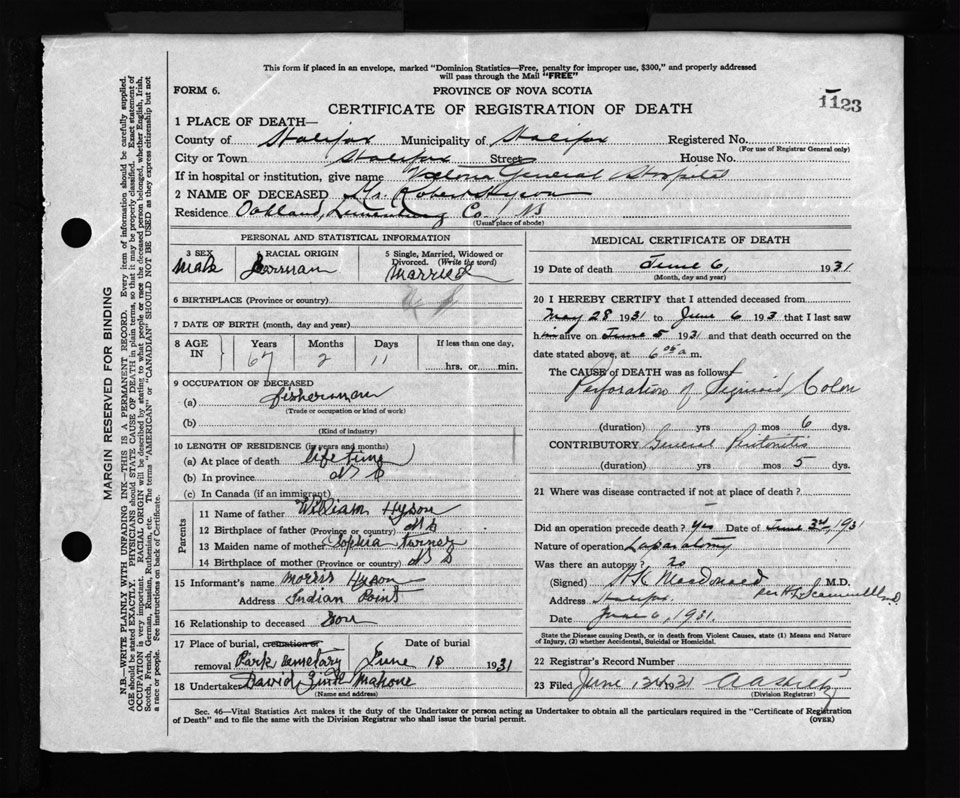 This form if placed in an envelope, marked "Dominion Statistics—Free, penalty for improper use, $300," and properly addressed
will pass through the Mail "FREE"
FORM 6.
PROVINCE OF NOVA SCOTIA
1123
CERTIFICATE OF REGISTRATION OF DEATH
1 PLACE OF DEATH—
County of Halifax Municipality of Halifax Registered No.
(For use of Registrar General only)
City or Town Halifax Street House No.
If in hospital or institution, give name Victoria General Hospital
2 NAME OF DECEASED Mr. Robert Hyson
Residence Oakland, Lunenburg Co. NS
(Usual place of abode)
PERSONAL AND STATISTICAL INFORMATION
3 SEX
Male
RACIAL ORIGIN
German
5 Single, Married, Widowed or
Divorced. (Write the word)
Married
6 BIRTHPLACE (Province or country)
7 DATE OF BIRTH (month, day and year)
8 AGE
IN
Years Months Days If less than one day,
67 2 11
hrs. or min.
9 OCCUPATION OF DECEASED
(a) fisherman
(Trade or occupation or kind of work)
(b)
(Kind of industry)
10 LENGTH OF RESIDENCE (in years and months)
(a) At place of death life time
(b) In province N S
(c) In Canada (if an immigrant)
Parents
11 Name of father William Hyson
12 Birthplace of father (Province or country) N S
13 Maiden name of mother Sophia Turner
14 Birthplace of mother (Province or country) N S
15 Informant's name Morris Hyson
Address Indian Point
16 Relationship to deceased Son
17 Place of burial, cremation or Date of burial
removal Park Cemetary June 18 1931
18 Undertaker David Mahone
(Name and address)
MEDICAL CERTIFICATE OF DEATH
19 Date of death June 6, 1931
(Month, day and year)
20 I HEREBY CERTIFY that I attended deceased from
May 28 1931 to June 6 193 that I last saw
him alive on June 5 1931 and that death occurred on the
date stated above, at 6 05 a m.
The CAUSE of DEATH was as follows
Perforation of Sigmoid Colon
(duration) yrs mos 6 dys.
CONTRIBUTORY General Peritonitis
(duration) yrs mos 5 dys.
21 Where was disease contracted if not at place of death?
Did an operation precede death? Yes Date of June 3rd, 1931
Nature of operation Laparatomy
Was there an autopsy? no
(Signed) H K Macdonald M.D.
Address Halifax per H L Scammell M.D.
Date June 6, 1931.
State the Disease causing Death, or in death from Violent Causes, state (1) Means and Nature
of Injury, (2) whether Accidental, Suicidal or Homicidal.
22 Registrar's Record Number
23 Filed June 13 1931
(Division Registrar)
Sec. 46—Vital Statistics Act makes it the duty of the Undertaker or person acting as Undertaker to obtain all the particulars required in the "Certificate of Registration
of Death" and to file the same with the Division Registrar who shall issue the burial permit.
(OVER)
MARGIN RESERVED FOR BINDING
N.B.—WRITE PLAINLY WITH UNFADING INK—THIS IS A PERMANENT RECORD. Every item of information should be carefully supplied.
AGE should be stated EXACTLY. PHYSICIANS should STATE CAUSE OF DEATH in plain terms, so that it may be properly classified. Exact statement of
OCCUPATION is very important. RACIAL ORIGIN will be described by stating to what people or race the deceased person belonged, whether English, Irish,
Scotch, French, German, Russian, Ruthenian, etc. The terms "AMERICAN" or "CANADIAN" SHOULD NOT BE USED as they express citizenship but not
a race or people. See instructions on back of Certificate.